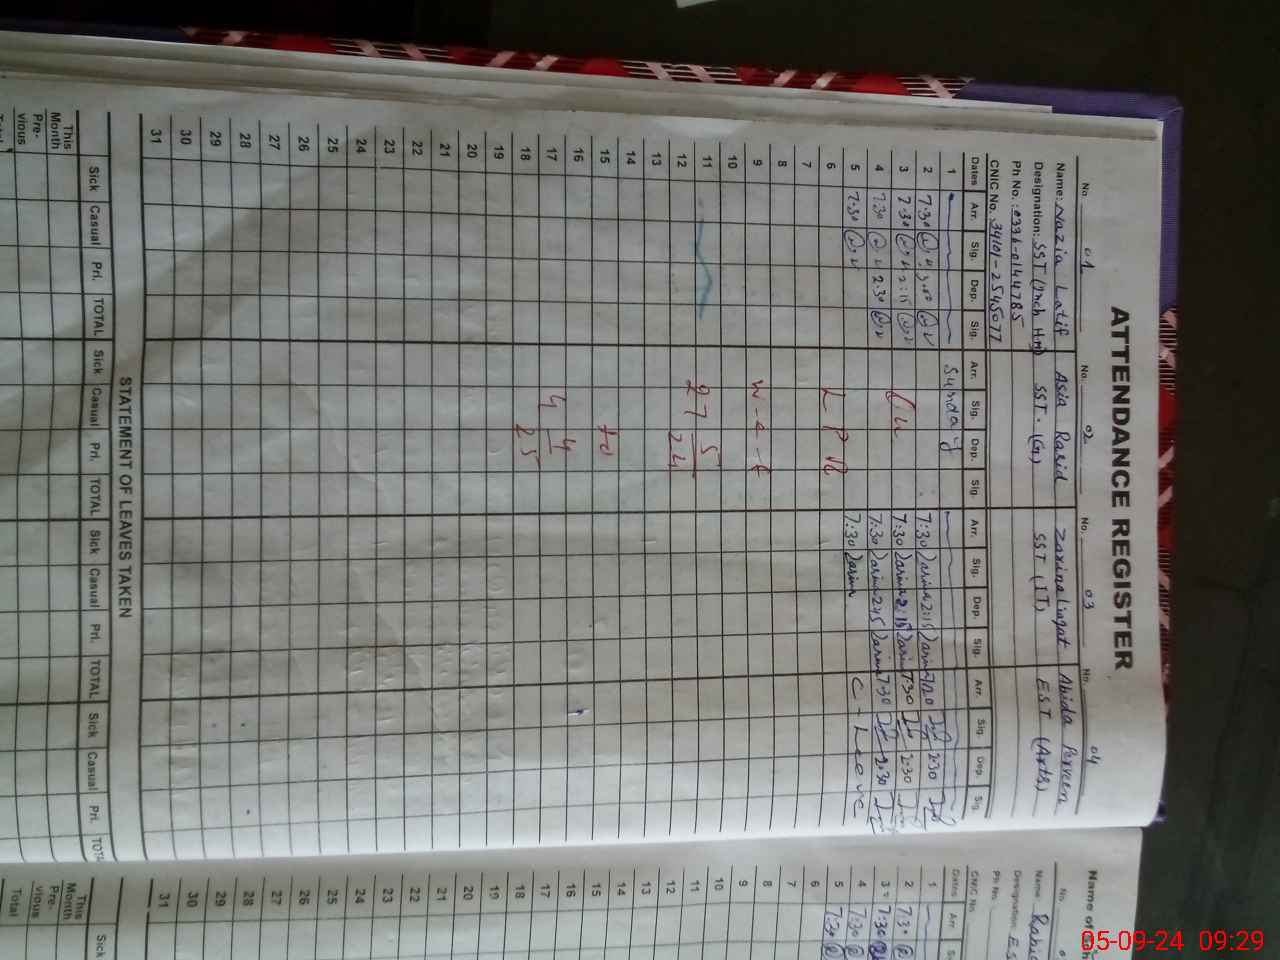 ATTENDANCE REGISTER
No. 01 No. 02 No. 03 No. 04
Name: Nazia Latif Asia Rasid Zarina liaqat Abida Perveen
Designation: SST (Inch H.M) SST. (G) SST (IT) EST (Arts)
Ph No.: 0336-0144785
CNIC No. 34101-2545077
Dates Arr. Sig. Dep. Sig. Arr. Sig. Dep. Sig. Arr. Sig. Dep. Sig. Arr. Sig. Dep. Sig.
1 Sunday
2 7:30 7:30 2:15 7:20 2:30
3 7:30 2:15 7:30 2:15 7:30 2:30
4 7:30 2:30 7:30 2:45 7:30 2:30
5 7:30 7:30 C-Leave
6 L P R
7
8
9 w-e-f
10
11 27 5
12 24
13
14
15 to
16
17 4 4
18 25
19
20
21
22
23
24
25
26
27
28
29
30
31
STATEMENT OF LEAVES TAKEN
Sick Casual Pri. TOTAL Sick Casual Pri. TOTAL Sick Casual Pri. TOTAL Sick Casual Pri.
This Month
Pre-vious
Total
Name of
No.
Name:
Designation:
Ph No.
CNIC No.
Dates Arr.
1
2 7:30
3 7:30
4 7:30
5 7:30
6
7
8
9
10
11
12
13
14
15
16
17
18
19
20
21
22
23
24
25
26
27
28
29
30
31
Sick
This Month
Pre-vious
Total
05-09-24 09:29